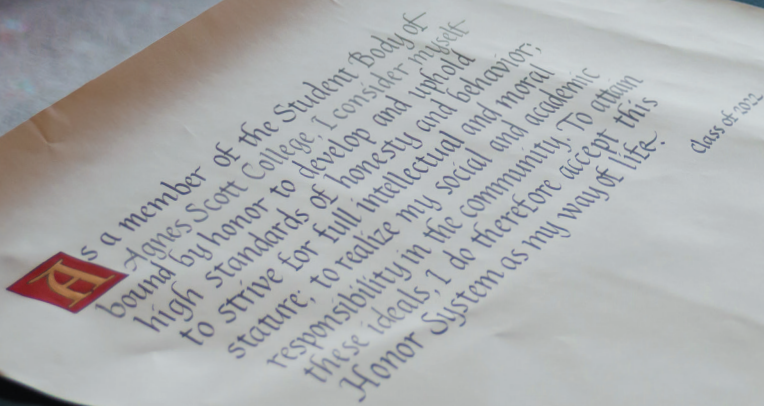 As a member of the Student Body of
Agnes Scott College, I consider myself
bound by honor to develop and uphold
high standards of honesty and behavior;
to strive for full intellectual and moral
stature; to realize my social and academic
responsibility in the community. To attain
these ideals, I do therefore accept this
Honor System as my way of life.
Class of 2022